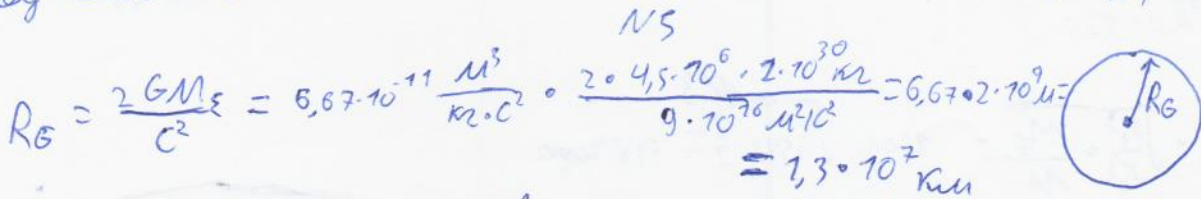 N5
R_G = \frac{2GM_ε}{c^2} = 6,67·10^{-11} \frac{м^3}{кг·с^2} · \frac{2·4,5·10^6·2·10^{30} кг}{9·10^{16} м^2/с^2} = 6,67·2·10^9 м =
= 1,3·10^7 км
R_G